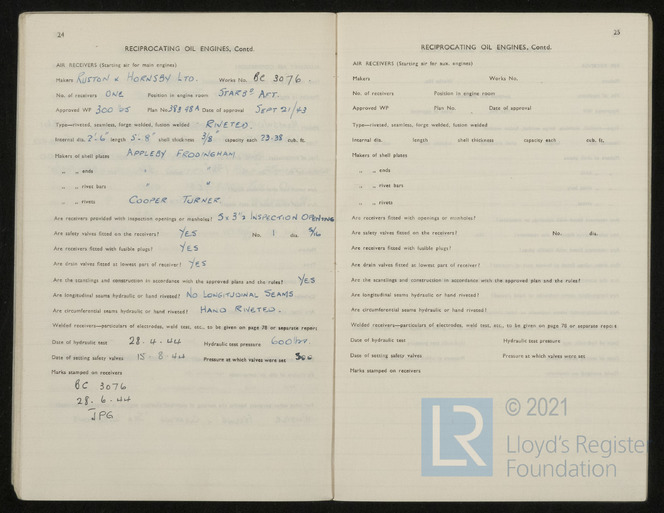 24
RECIPROCATING OIL ENGINES, Contd.
AIR RECEIVERS (Starting air for main engines)
Makers RUSTON & HORNSBY LTD. Works No. BC 3076.
No. of receivers ONE Position in engine room STARBD AFT.
Approved WP 300 lbs Plan No. 383 48A Date of approval SEPT 21/43
Type—riveted, seamless, forge welded, fusion welded RIVETED.
Internal dia. 2'-6" length 5'-8" shell thickness 3/8" capacity each 23.38 cub. ft.
Makers of shell plates APPLEBY FRODINGHAM
„ „ ends " "
„ „ rivet bars " "
„ „ rivets COOPER TURNER.
Are receivers provided with inspection openings or manholes? 5 x 3"s INSPECTION OPENING
Are safety valves fitted on the receivers? YES No. 1 dia. 5/16
Are receivers fitted with fusible plugs? YES
Are drain valves fitted at lowest part of receiver? YES
Are the scantlings and construction in accordance with the approved plans and the rules? YES
Are longitudinal seams hydraulic or hand riveted? NO LONGITUDINAL SEAMS
Are circumferential seams hydraulic or hand riveted? HAND RIVETED.
Welded receivers—particulars of electrodes, weld test, etc., to be given on page 78 or separate report
Date of hydraulic test 28.4.44 Hydraulic test pressure 600
Date of setting safety valves 15.8.44 Pressure at which valves were set 300
Marks stamped on receivers
BC 3076
28.6.44
JPG
25
RECIPROCATING OIL ENGINES, Contd.
AIR RECEIVERS (Starting air for aux. engines)
Makers Works No.
No. of receivers Position in engine room
Approved WP Plan No. Date of approval
Type—riveted, seamless, forge welded, fusion welded
Internal dia. length shell thickness capacity each cub. ft.
Makers of shell plates
„ „ ends
„ „ rivet bars
„ „ rivets
Are receivers fitted with openings or manholes?
Are safety valves fitted on the receivers? No. dia.
Are receivers fitted with fusible plugs?
Are drain valves fitted at lowest part of receiver?
Are the scantlings and construction in accordance with the approved plan and the rules?
Are longitudinal seams hydraulic or hand riveted?
Are circumferential seams hydraulic or hand riveted?
Welded receivers—particulars of electrodes, weld test, etc., to be given on page 78 or separate report
Date of hydraulic test Hydraulic test pressure
Date of setting safety valves Pressure at which valves were set
Marks stamped on receivers
LR
© 2021
Lloyd's Register
Foundation